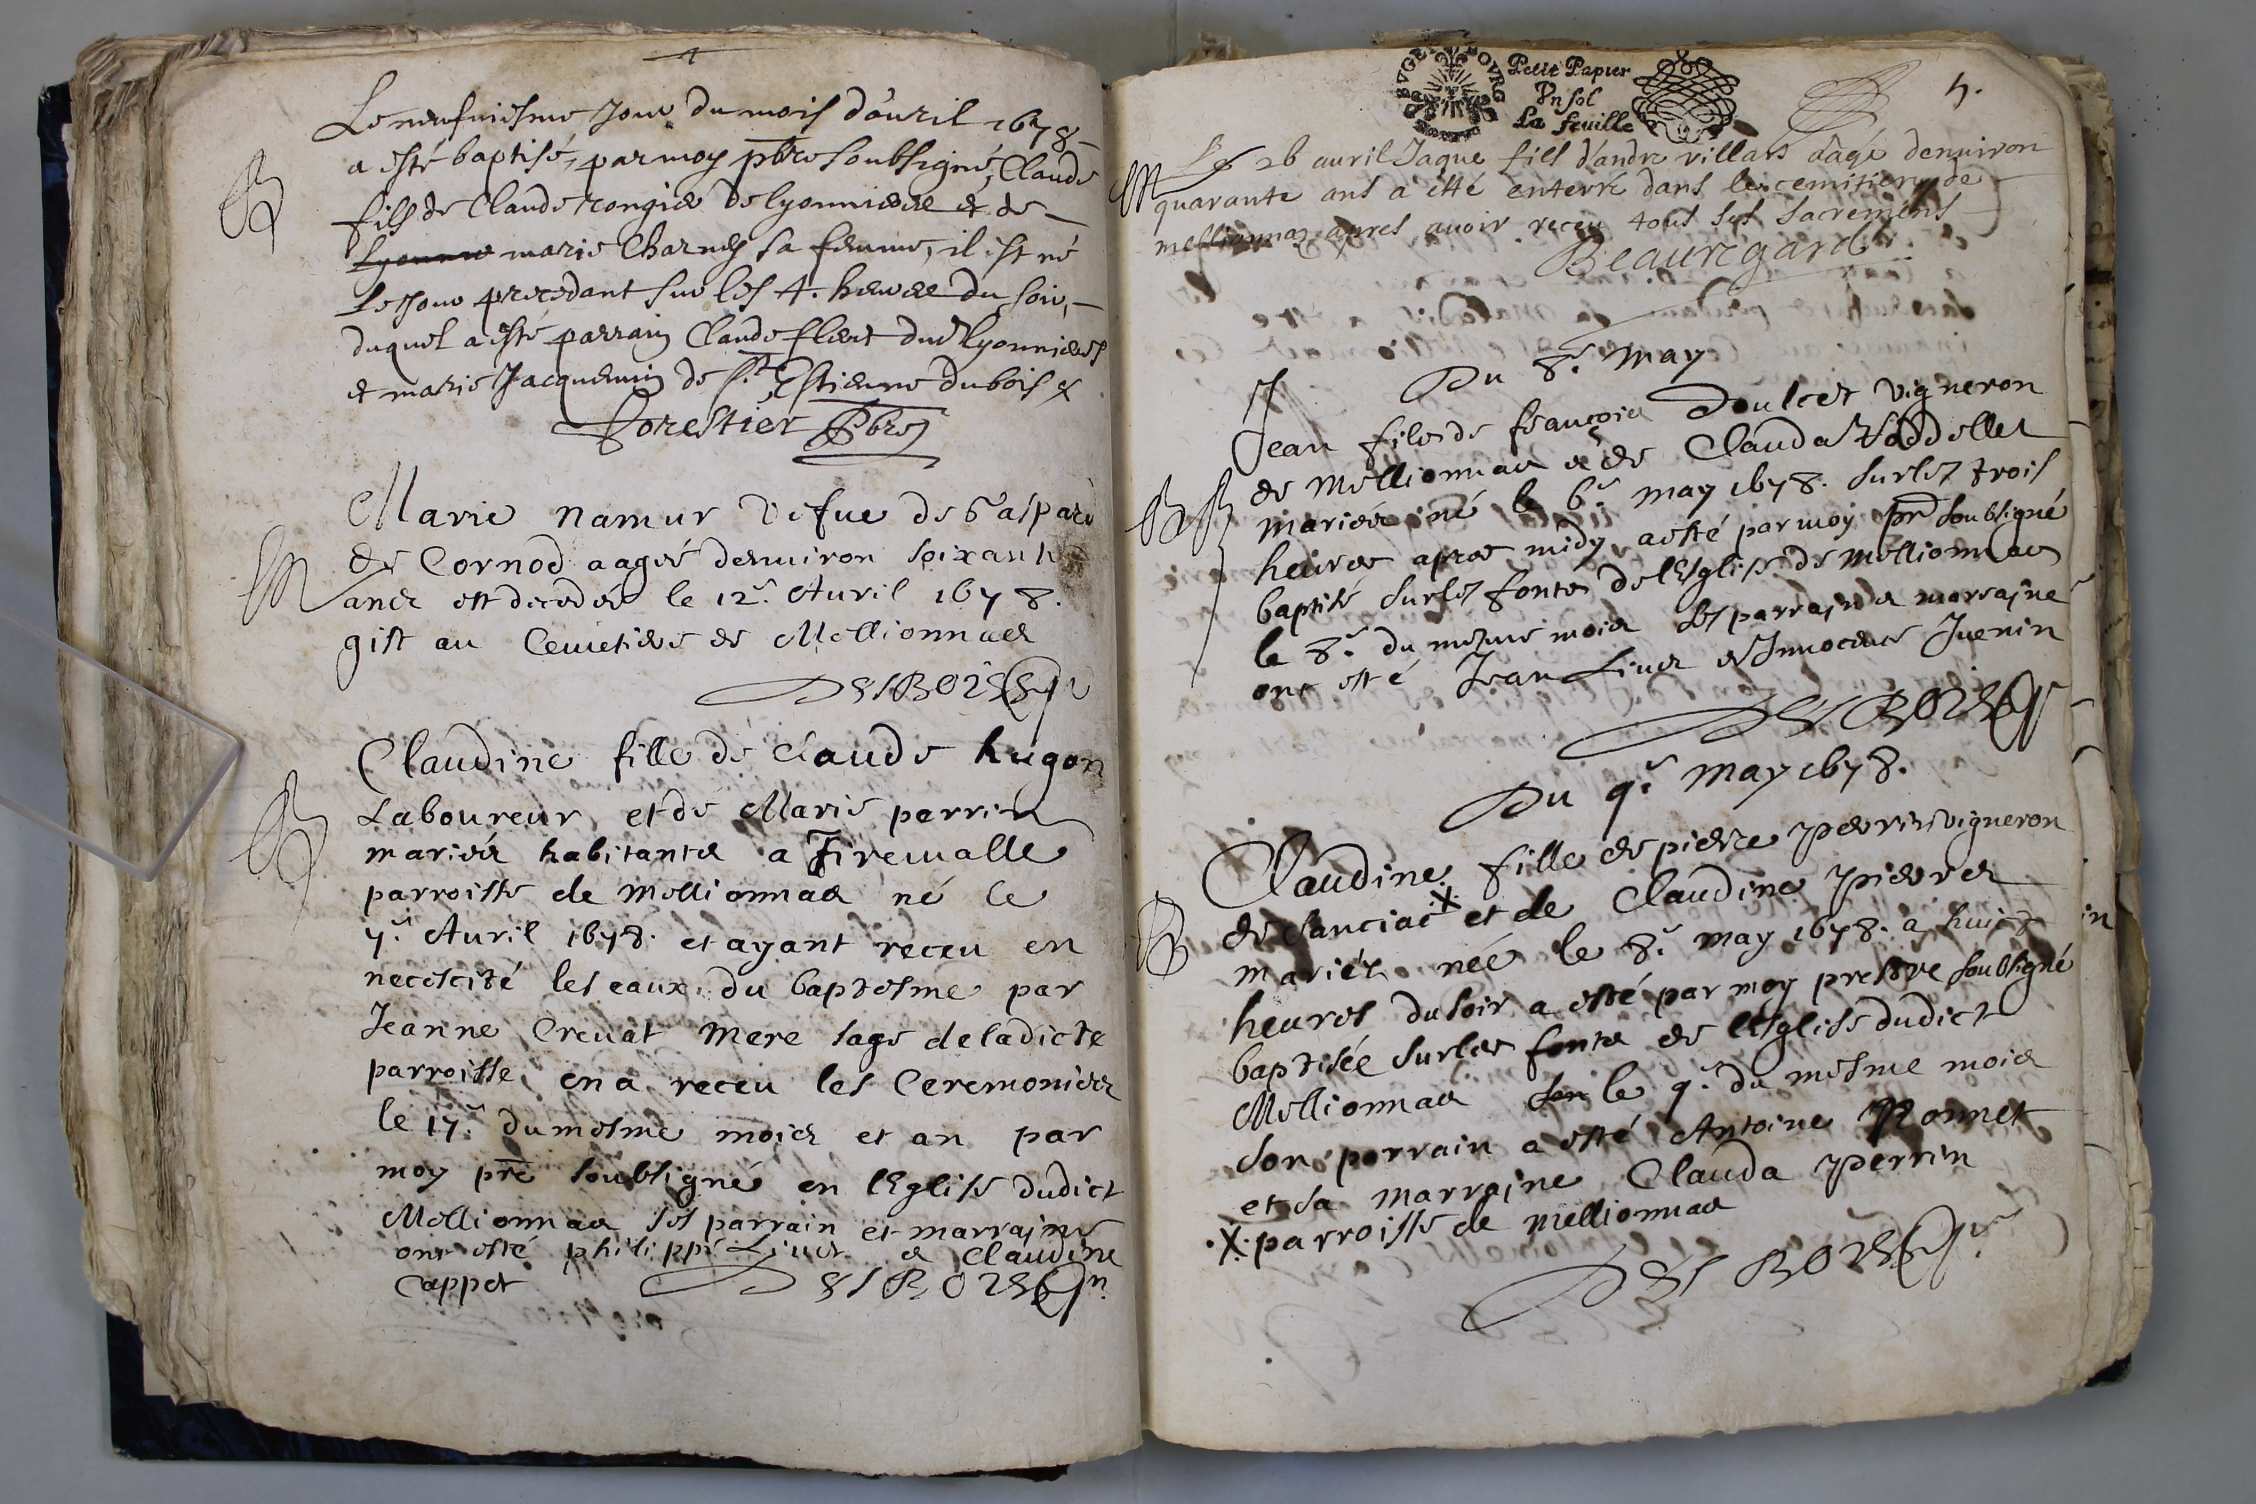 4
Le neufuiesme Jour du mois dauril 1678
a esté baptisé, par moy pbre soubsigné, Claude
fils de Claude rongier de lyonnieres et de
Lyonnie marie Charney sa femme, il est né
Le Jour precedant sur les 4. heures du soir,
duquel a esté parrain Claude flect dud lyonnieres
et marie Jacquemin de St Estienne dubois
forestier pbre
Marie namur Vefue de Gaspard
de Cornod aagée denuiron soixante
M
ances est decedée le 12e. Auril 1678.
gist au Cemetiere de Mellionnas
DESBORDES
Claudine fille de Claude hugon
B
Laboureur, et de Marie perrin
mariés habitants a Tirevalle
parroisse de mellionnas né le
7e. Auril 1678. et ayant receu en
necescité les eaux du baptesme par
Jeanne Creuat mere sage de ladicte
parroisse, en a receu les Ceremonies
le 17e. du mesme mois et an par
moy pre soubsigné en lEglise dudict
Mellionnas ses parrain et marrayne
ont esté philippe Liuet & Claudine
Cappet DESBORDES
BUGEY BOURG
Petit Papier
Vn sol
La feuille
5.
Le 26 auril Jaque fils d'andre villars aagé denuiron
M
quarante ans a etté enterré dans le cemitiere de
mellionnas apres auoir receu tous ses sacremens
Beauregard
Du 8e. may
Jean fils de françois Doulcet vigneron
de Mellionnas & de Clauda
B B
mariés né le 6e. may 1678. sur les trois
heures apres midy a esté par moy pre soubsigné
baptisé sur les fonts de lEglise de mellionnas
le 8e. du mesme mois ses parrain & marrayne
ont esté Jean Liuet & Innocence Juenin
DESBORDES
Du 9e. may 1678.
Claudine fille de pierre perrin vigneron
B
de sanciat X et de Claudine pierres
mariés née le 8e. may 1678. a huict
heures du soir a esté par moy prestre soubsigné
baptisée sur les fonts de lEglise dudict
Mellionnas le 9e. du mesme mois
son parrain a esté Antoine Ronnet
et sa marrayne Clauda perrin
.X. parroisse de mellionnas
DESBORDES